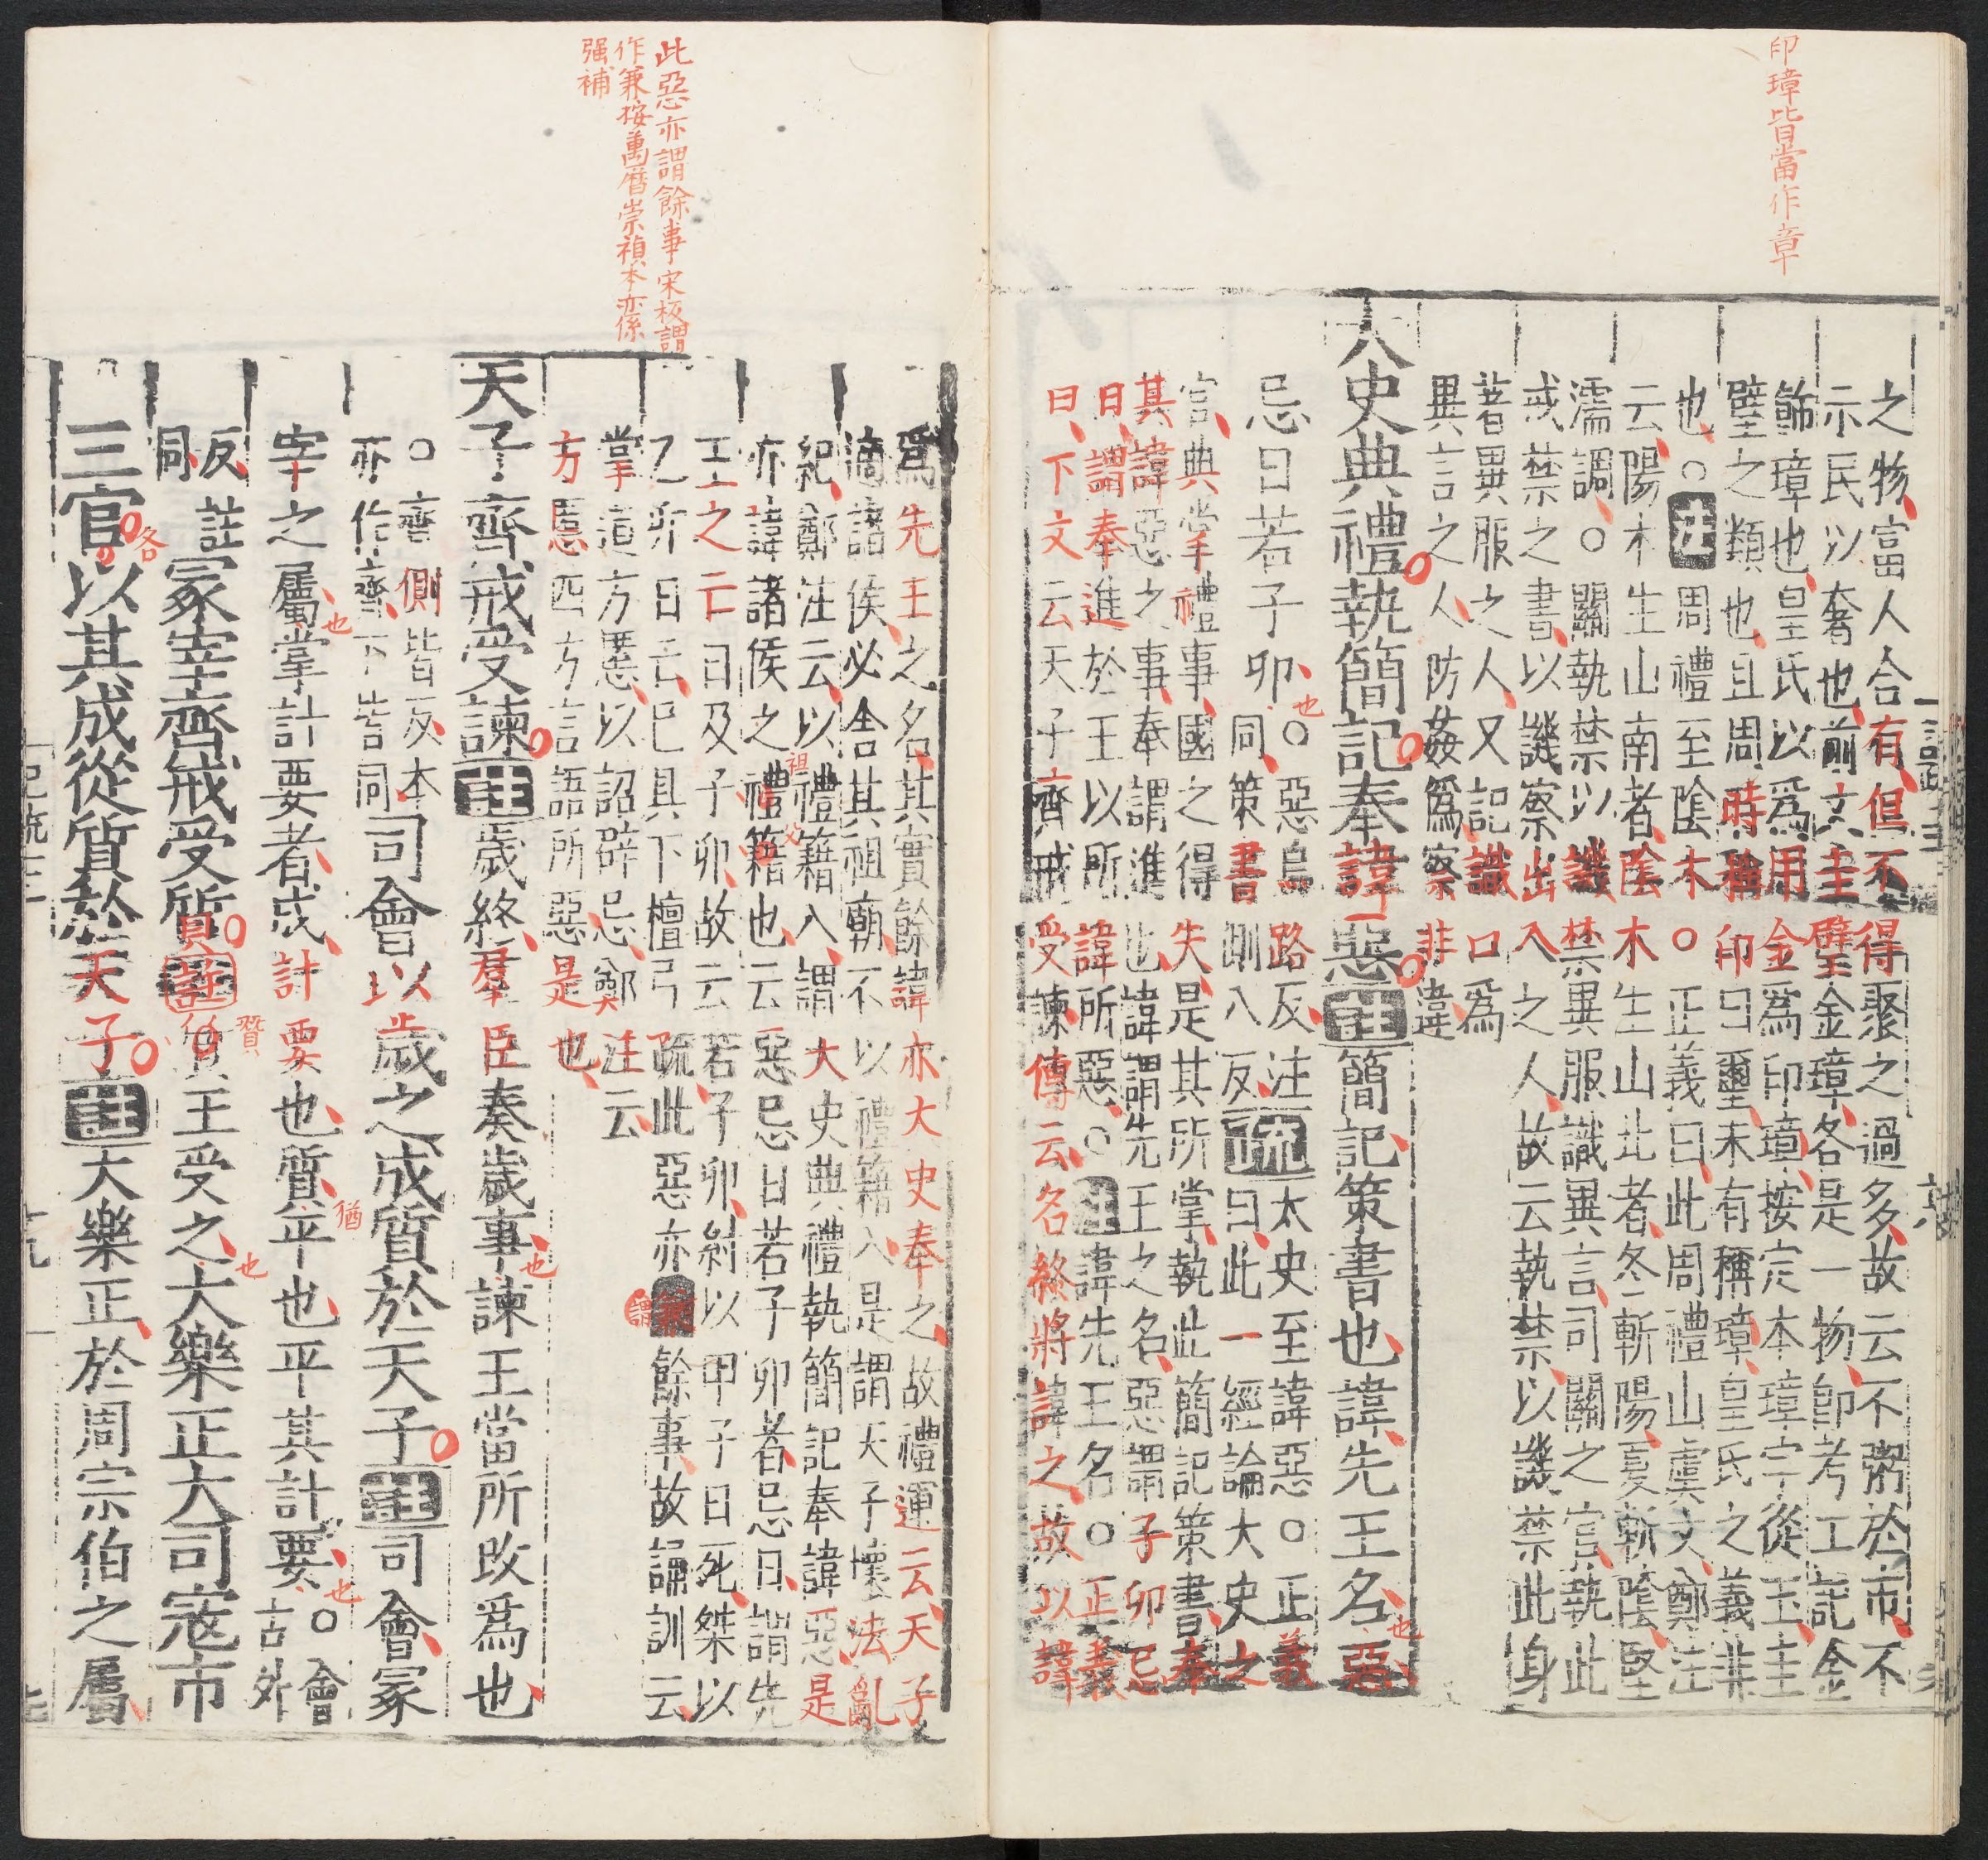 印璋皆當作章
之物富人合有但不得聚之過多故云不粥於市不
示民以奢也前文圭璧金璋各是一物即考工記金
飾璋也皇氏以爲用金爲印璋按定本璋字從玉圭
璧之類也且周時稱印曰璽未有稱璋皇氏之義非
也○注周禮至陰木○正義曰此周禮山虞文鄭注
云陽木生山南者陰木生山北者冬斬陽夏斬陰堅
濡調○關執禁以譏禁異服識異言司關之官執此
戒禁之書以譏察出入之人故云執禁以譏禁此身
著異服之人又記識口爲
異言之人防姦爲察非違
大史典禮執簡記奉諱惡註簡記策書也諱先王名惡也
忌日若子卯也○惡烏路反注
同策書劃八反
疏大史至諱惡○正義
曰此一經論大史之
官典掌禮事國之得失是其所掌執此簡記策書奉
其諱惡之事奉謂進也諱謂先王之名惡謂子卯忌
日謂奉進於王以所諱所惡○注諱先王名○正義
曰下文云天子齊戒受諫傳云名終將諱之故以諱
爲先王之名其實餘諱亦大史奉之故禮運云天子
適諸侯必舍其祖廟不以禮籍入是謂天子壞法亂
紀鄭注云以禮籍入謂大史典禮執簡記奉諱惡是
亦諱諸侯之祖父禮籍也云惡忌日若子卯者忌日謂先
王之亡日及子卯故云若子卯紂以甲子日死桀以
乙卯日亡已具下檀弓疏此惡亦謂餘事故誦訓云
掌道方慝以詔辟忌鄭注云
方慝四方言語所惡是也
此惡亦謂餘事宋板謂
作兼按萬曆崇禎本並係
强補
天子齊戒受諫註歲終羣臣奏歲事也諫王當所改爲也
○齊側皆反本
亦作齋下皆同
司會以歲之成質於天子註司會冢
宰之屬也掌計要者成計要也質猶平也平其計要也○會
古外
反註
同
冢宰齊戒受質註贊王受之也大樂正大司寇市
三官各以其成從質於天子註大樂正於周宗伯之屬